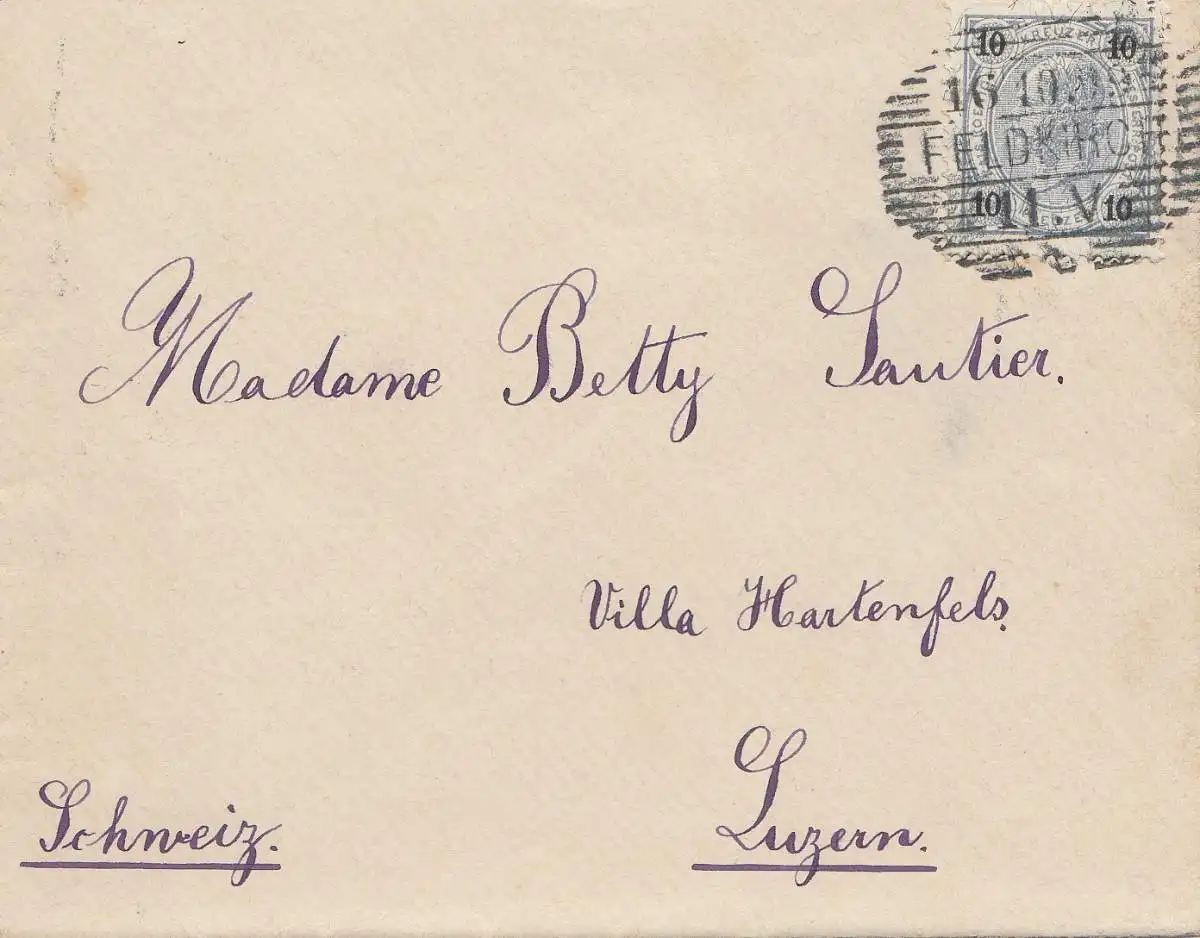 10 KREUZER 10
16 10
FELDKIRC
10 11.V 10
KREUZER
Madame Betty Sautier.
Villa Hartenfels.
Luzern.
Schweiz.